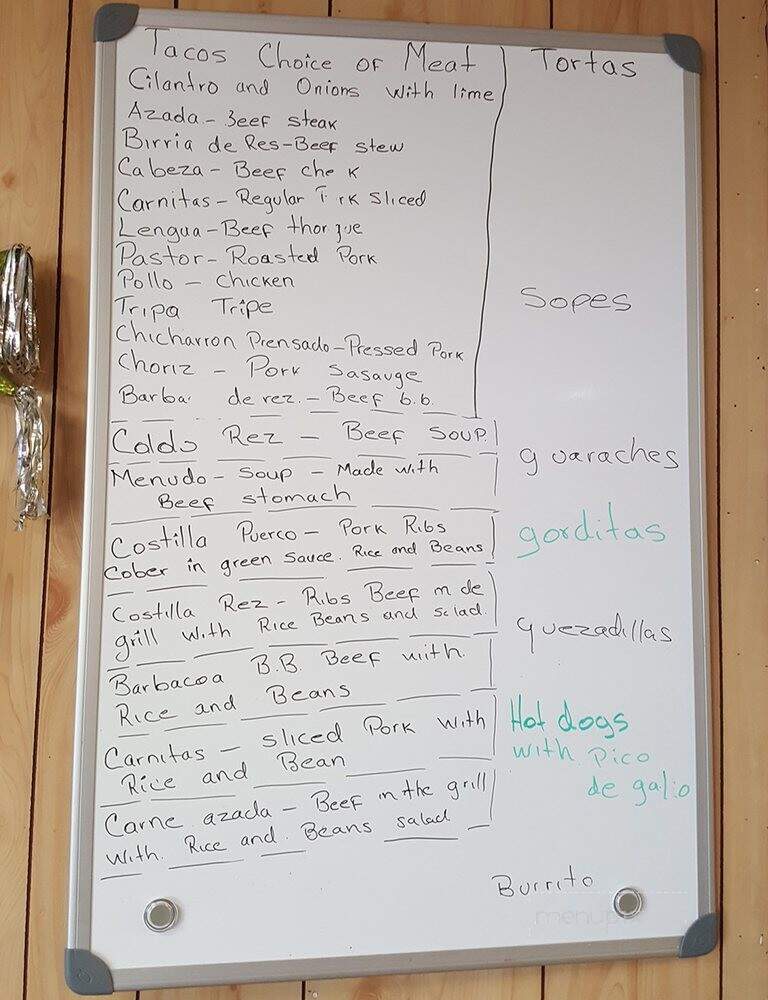 Tacos Choice of Meat
Cilantro and Onions with lime
Azada - Beef steak
Birria de Res - Beef stew
Cabeza - Beef che k
Carnitas - Regular rk sliced
Lengua - Beef
Pastor - Roasted Pork
Pollo - Chicken
Tripa Tripe
Chicharron Prensado - Pressed Pork
Choriz - Pork Sasauge
Barba de rez. - Beef b.b.
Caldo Rez - Beef Soup.
Menudo - Soup - Made with
Beef stomach
Costilla Puerco - Pork Ribs
Cober in green sauce. Rice and Beans
Costilla Rez - Ribs Beef de
grill with Rice Beans and salad.
Barbacoa B.B. Beef with.
Rice and Beans
Carnitas - sliced Pork with
Rice and Bean
Carne azada - Beef in the grill
with. Rice and. Beans salad
Tortas
Sopes
guaraches
gorditas
quezadillas
Hot dogs
with pico
de galio
Burrito